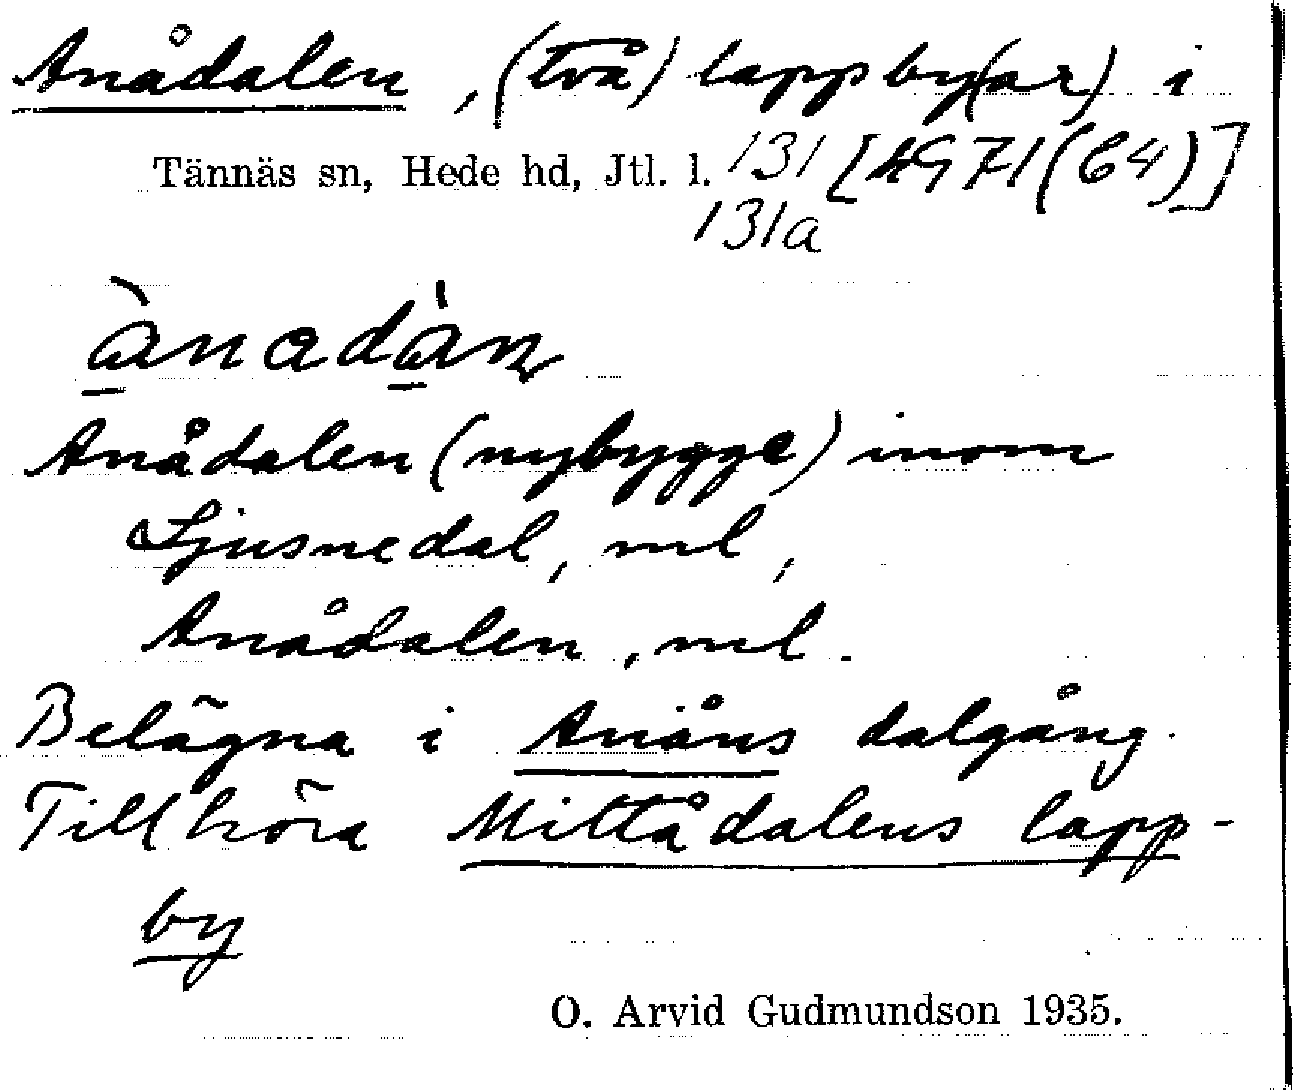 Anådalen, (två) lappby(ar) i
Tännäs sn, Hede hd, Jtl. l. 131 [4971(64)]
131a
Anådalen (nybygge) inom
Ljusnedal, ml,
Anådalen, ml.
Belägna i Anåns dalgång.
Tillhöra Mittådalens lapp-
by
O. Arvid Gudmundson 1935.